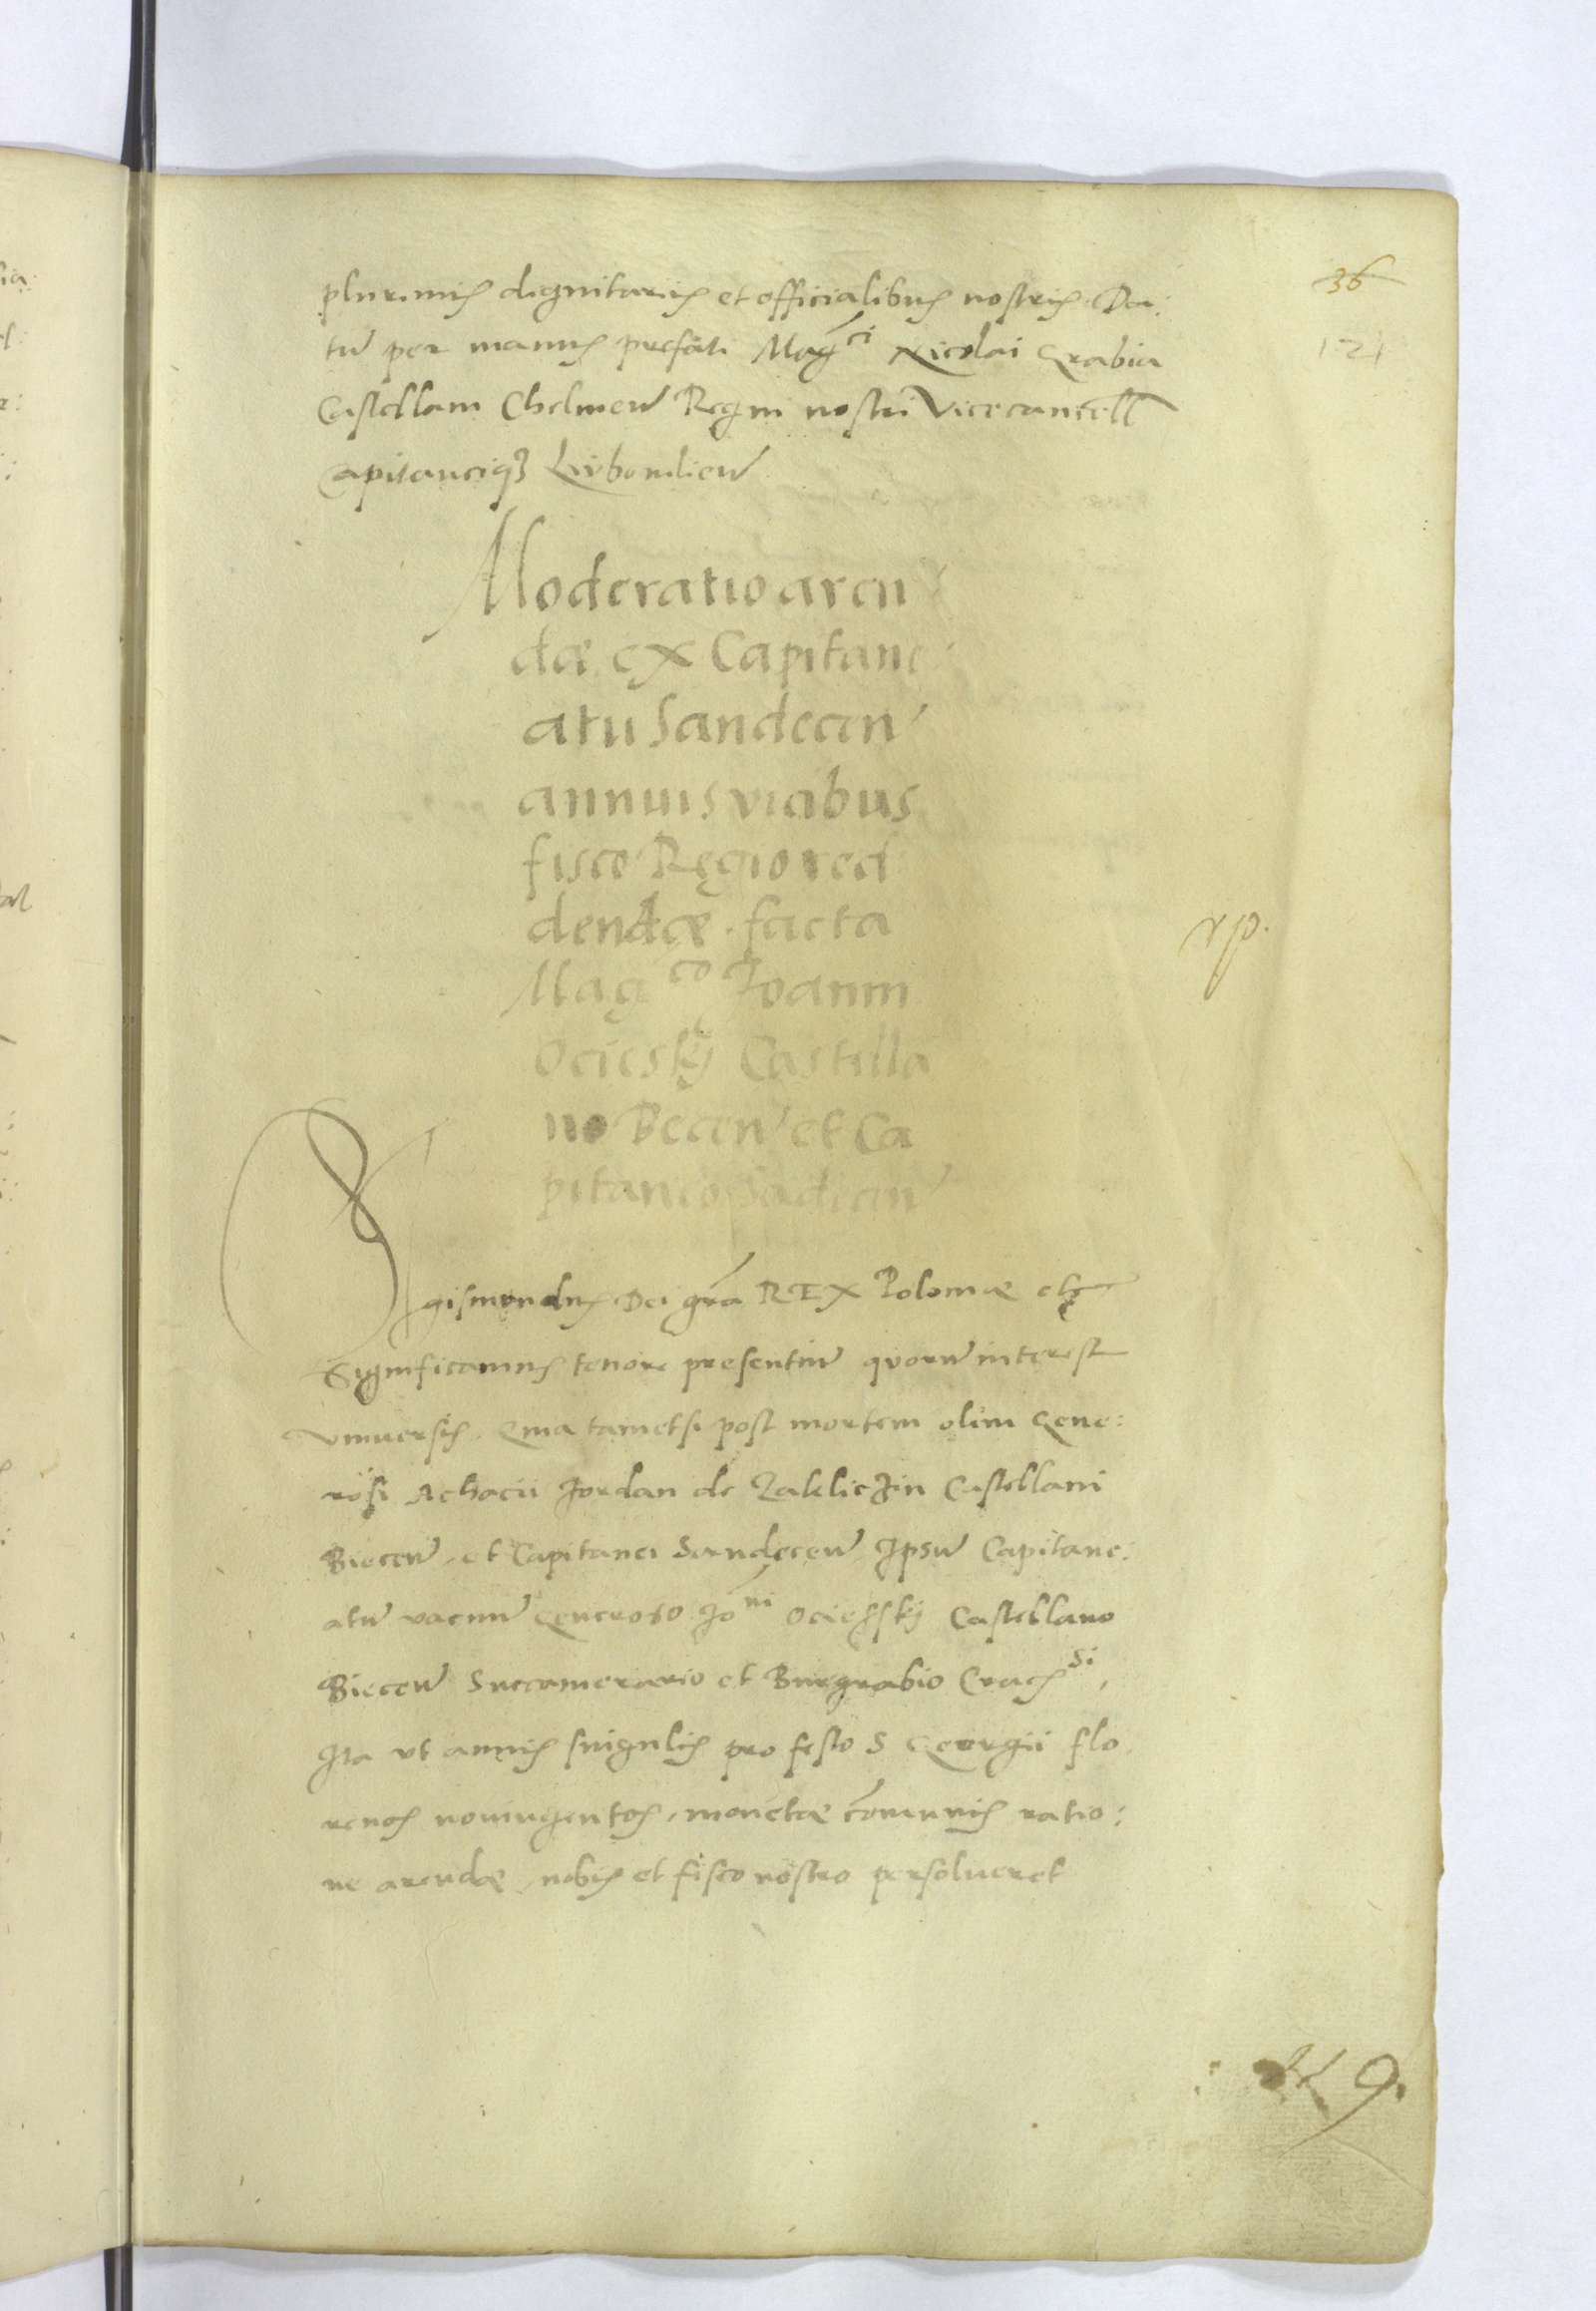 plurimis dignitariis et officialibus nostris. Da:
tum per manus prefati Mag^ci Nicolai Grabia
Castellani Chelmen Regni nostri Vicecancell
Capitaneiq3 Lubomlien
36
121
Moderatio aren
dæ ex Capitane
atu Sandecen
annuis vicibus
fisco Regio red
dendæ . facta
Mag^co Joanni
Ociesky Castella
no Becen et Ca
pitaneo Sadecen
rp.
Sigismundus Dei gra REX Poloniæ etc
Significamus tenore presentium quorum interest
vniuersis. Quia tametsi post mortem olim Gene:
rosi Achacii Jordan de Zakliczin Castellani
Biecen et Capitanei Sandecen Ipsum Capitane:
atum vacuum Generoso Jo^ni Ociessky Castellano
Biecen Succamerario et Burgrabio Crac^si,
Ita vt annis singulis pro festo S Georgii flo
renos noningentos, monetæ cōmunis ratio:
ne arendæ, nobis et fisco nostro persolueret
9.